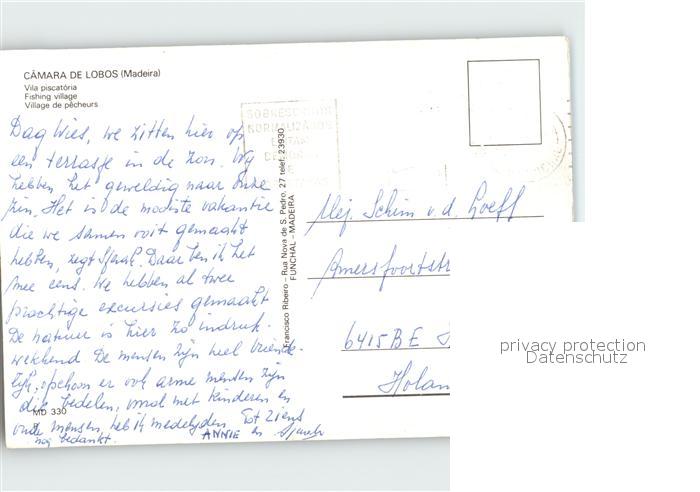 CÂMARA DE LOBOS (Madeira)
Vila piscatória
Fishing village
Village de pêcheurs
Dag Wies, we zitten hier op
een terrasje in de zon. Wij
hebben het geweldig naar onze
zin. Het is de mooiste vakantie
die we samen ooit gemaakt
hebben, zegt Sjerak. Daar ben ik het
mee eens. We hebben al twee
prachtige excursies gemaakt
De natuur is hier zo indruk-
wekkend De mensen zijn heel vriende-
lijk, opschoon er ook arme mensen zijn
die bedelen, vooral met kinderen en
oude mensen, heb ik medelijden. Tot ziens
nog bedankt. ANNIE en
MD 330
Francisco Ribeiro – Rua Nova de S. Pedro, 27 telef. 23930
FUNCHAL – MADEIRA
Mej. Schim v.d. Loeff
Amersfoortstr
6415BE
Holan
privacy protection
Datenschutz